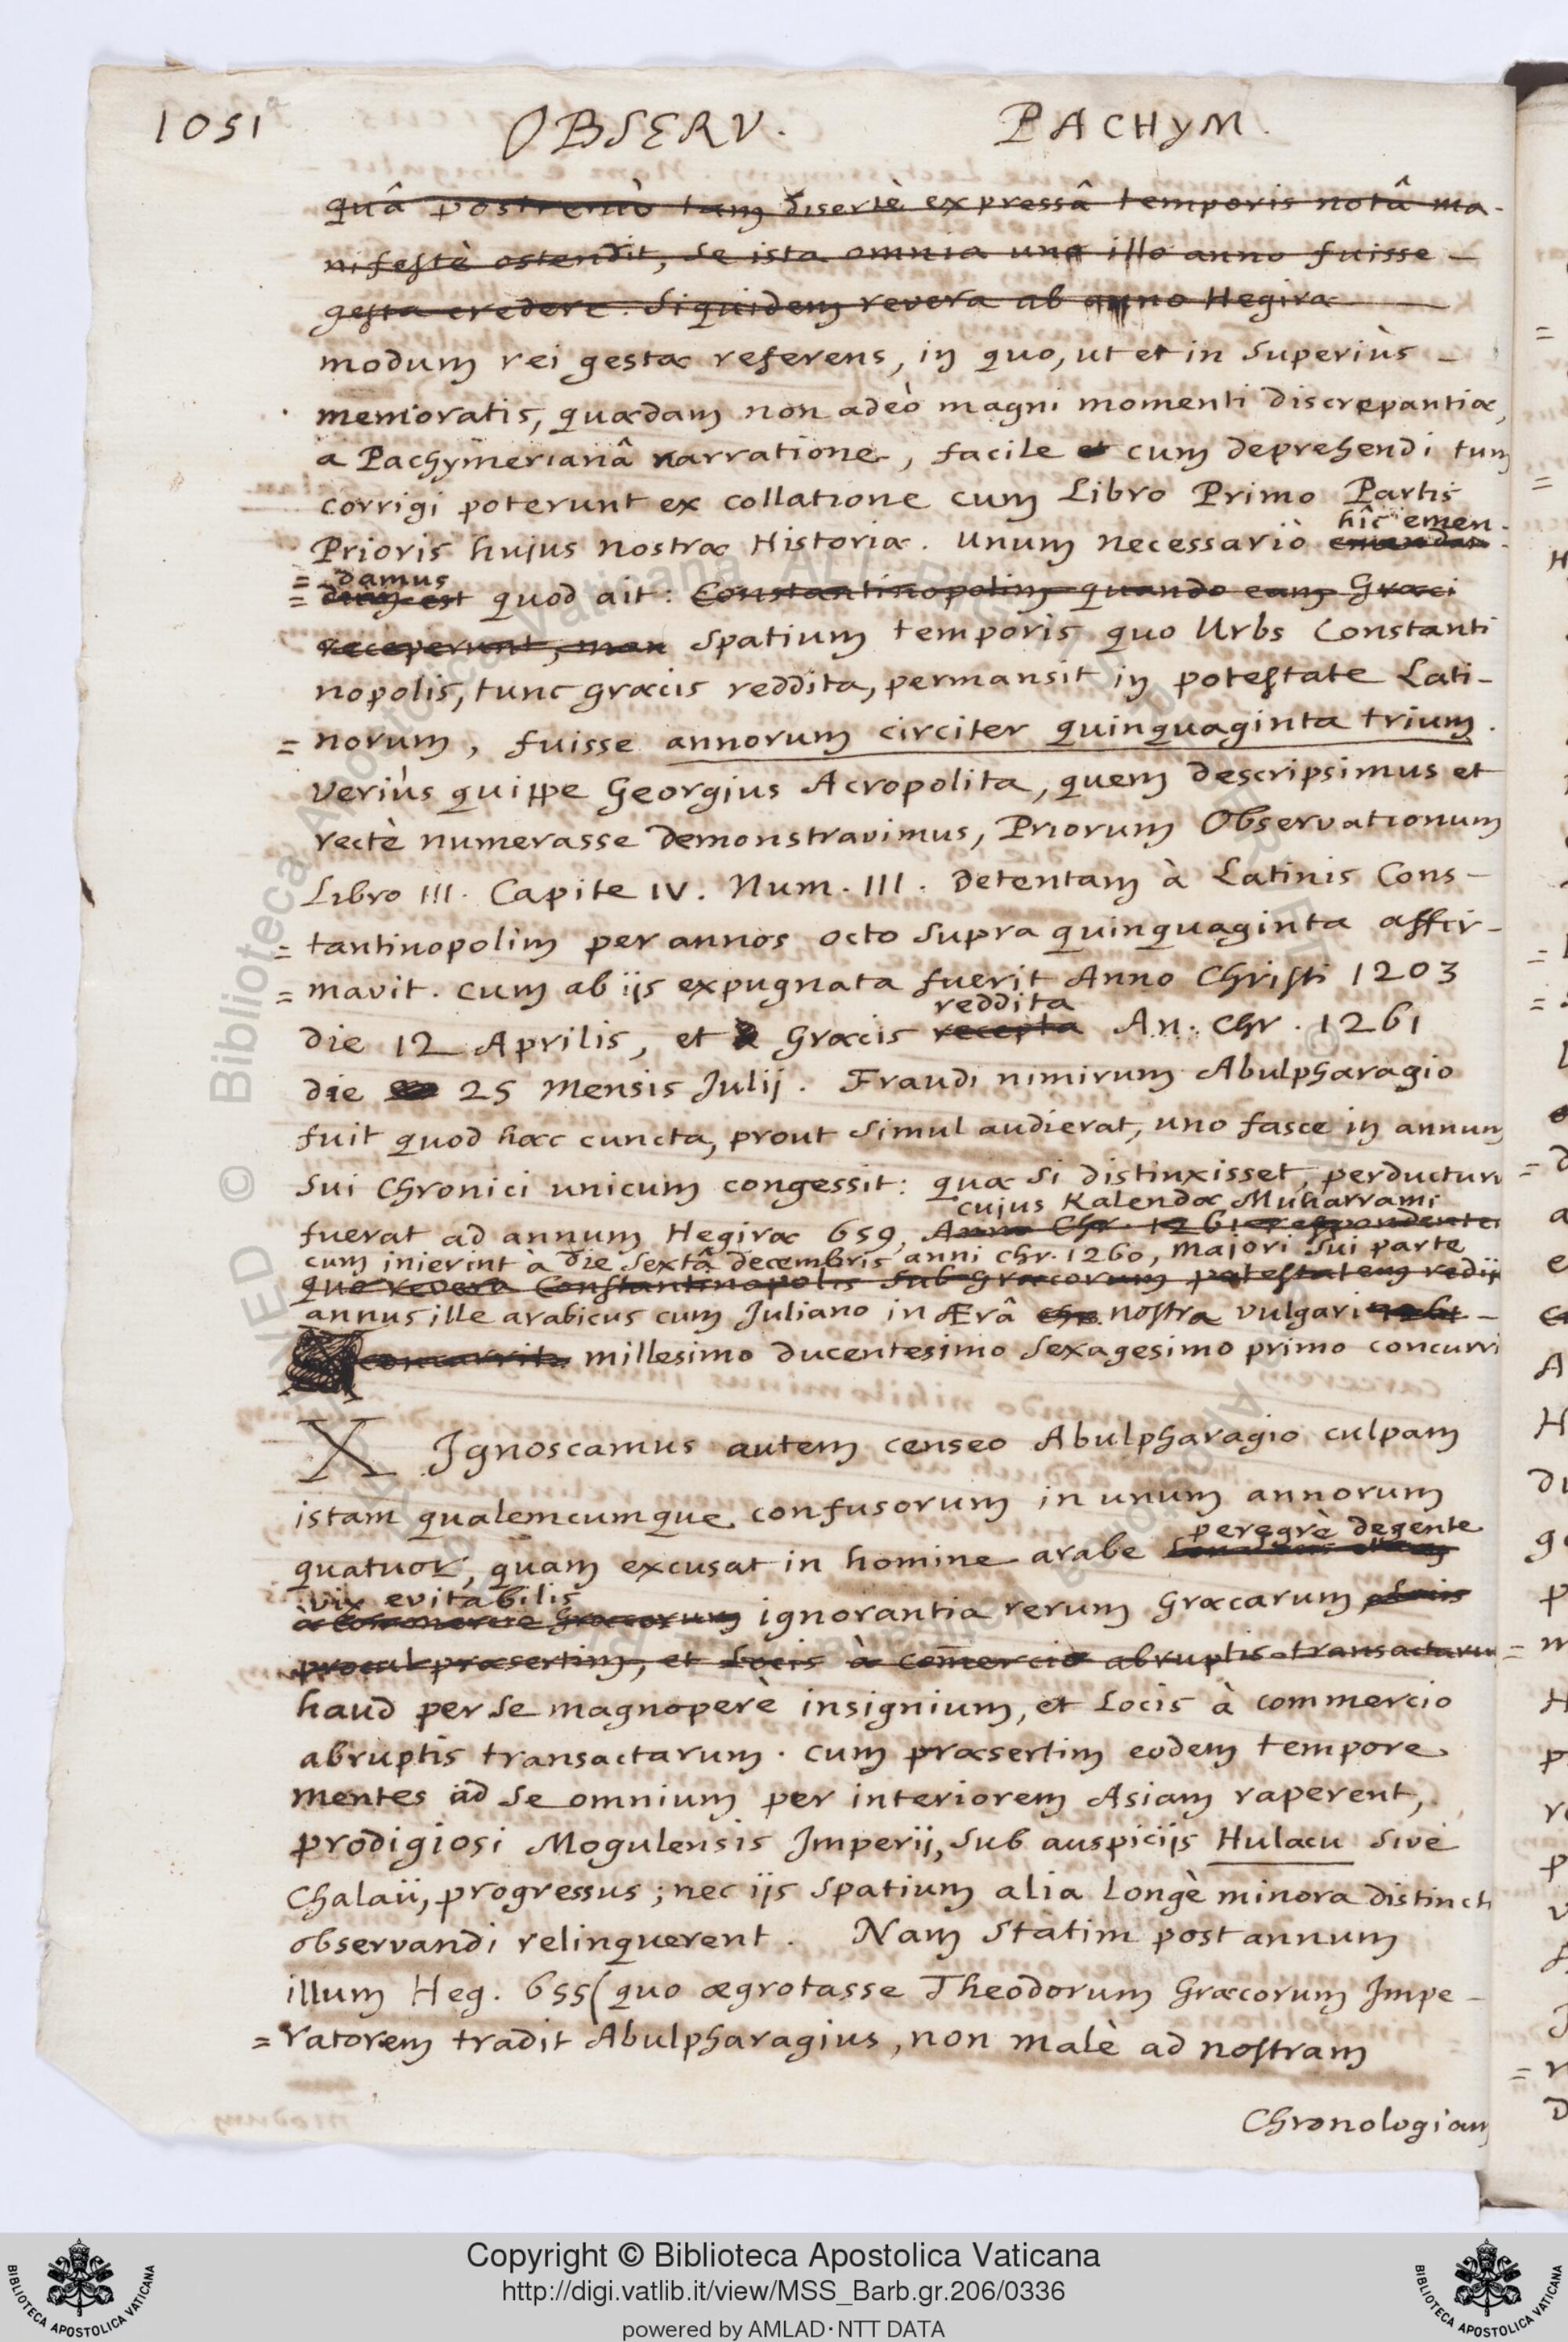 1051a
OBSERV. PACHYM.
quâ postremò tam disertè expressâ temporis notâ ma-
nifestè ostendit, se ista omnia uno illo anno fuisse -
gesta credere. Siquidem revera ab anno Hegiræ
modum rei gestæ referens, in quo, ut et in superiùs -
memoratis, quædam non adeò magni momenti discrepantiæ,
a Pachymerianâ narratione, facile et cum deprehendi tum
corrigi poterunt ex collatione cum Libro Primo Partis
hîc emen-
Prioris hujus nostræ Historiæ. Unum necessariò emendan-
= damus
= dum est quod ait: Constantinopolim quando eam Græci
receperunt, man spatium temporis quo Urbs Constanti
nopolis, tunc græcis reddita, permansit in potestate Lati-
= norum, fuisse annorum circiter quinquaginta trium.
Veriùs quippe Georgius Acropolita, quem descripsimus et
rectè numerasse demonstravimus, Priorum Observationum
Libro III. Capite IV. Num. III. Detentam à Latinis Cons-
= tantinopolim per annos octo supra quinquaginta affir-
= mavit. cum ab ijs expugnata fuerit Anno Christi 1203
reddita
die 12 Aprilis, et à Græcis recepta An. Chr. 1261
die 25 Mensis Julij. Fraudi nimirum Abulpharagio
fuit quod hæc cuncta, prout simul audierat, uno fasce in annum
sui Chronici unicum congessit: quæ si distinxisset, perductum
cujus Kalendæ Muharrami
fuerat ad annum Hegiræ 659, Anno Chr. 1261 respondentem
cum inierint à die sextâ decembris anni chr. 1260, majori sui parte
quo revera Constantinopolis sub Græcorum potestatem redijt
annus ille arabicus cum Juliano in Ærâ chr. nostra vulgari
concurrit millesimo ducentesimo sexagesimo primo concurri
X Ignoscamus autem censeo Abulpharagio culpam
istam qualemcumque confusorum in unum annorum
peregrè degente
quatuor, quam excusat in homine arabe
vix evitabilis
à commercio Græcorum ignorantia rerum Græcarum, Locis
procul præsertim, et Locis à com̄ercio abruptis transactarum
haud per se magnoperè insignium, et Locis à commercio
abruptis transactarum. cum præsertim eodem tempore
mentes ad se omnium per interiorem Asiam raperent,
prodigiosi Mogulensis Imperij, sub auspicijs Hulacu sive
Chalaü, progressus; nec ijs spatium alia longè minora distinctè
observandi relinquerent. Nam statim post annum
illum Heg. 655 (quo ægrotasse Theodorum Græcorum Impe-
= ratorem tradit Abulpharagius, non malè ad nostram
Chronologiam
© Biblioteca Apostolica Vaticana
Copyright © Biblioteca Apostolica Vaticana
http://digi.vatlib.it/view/MSS_Barb.gr.206/0336
powered by AMLAD·NTT DATA
BIBLIOTECA APOSTOLICA VATICANA
BIBLIOTECA APOSTOLICA VATICANA